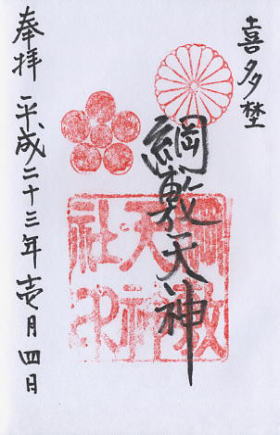 喜多埜
綱敷天神
奉拝
平成二十三年壱月四日
綱敷
天神
社印